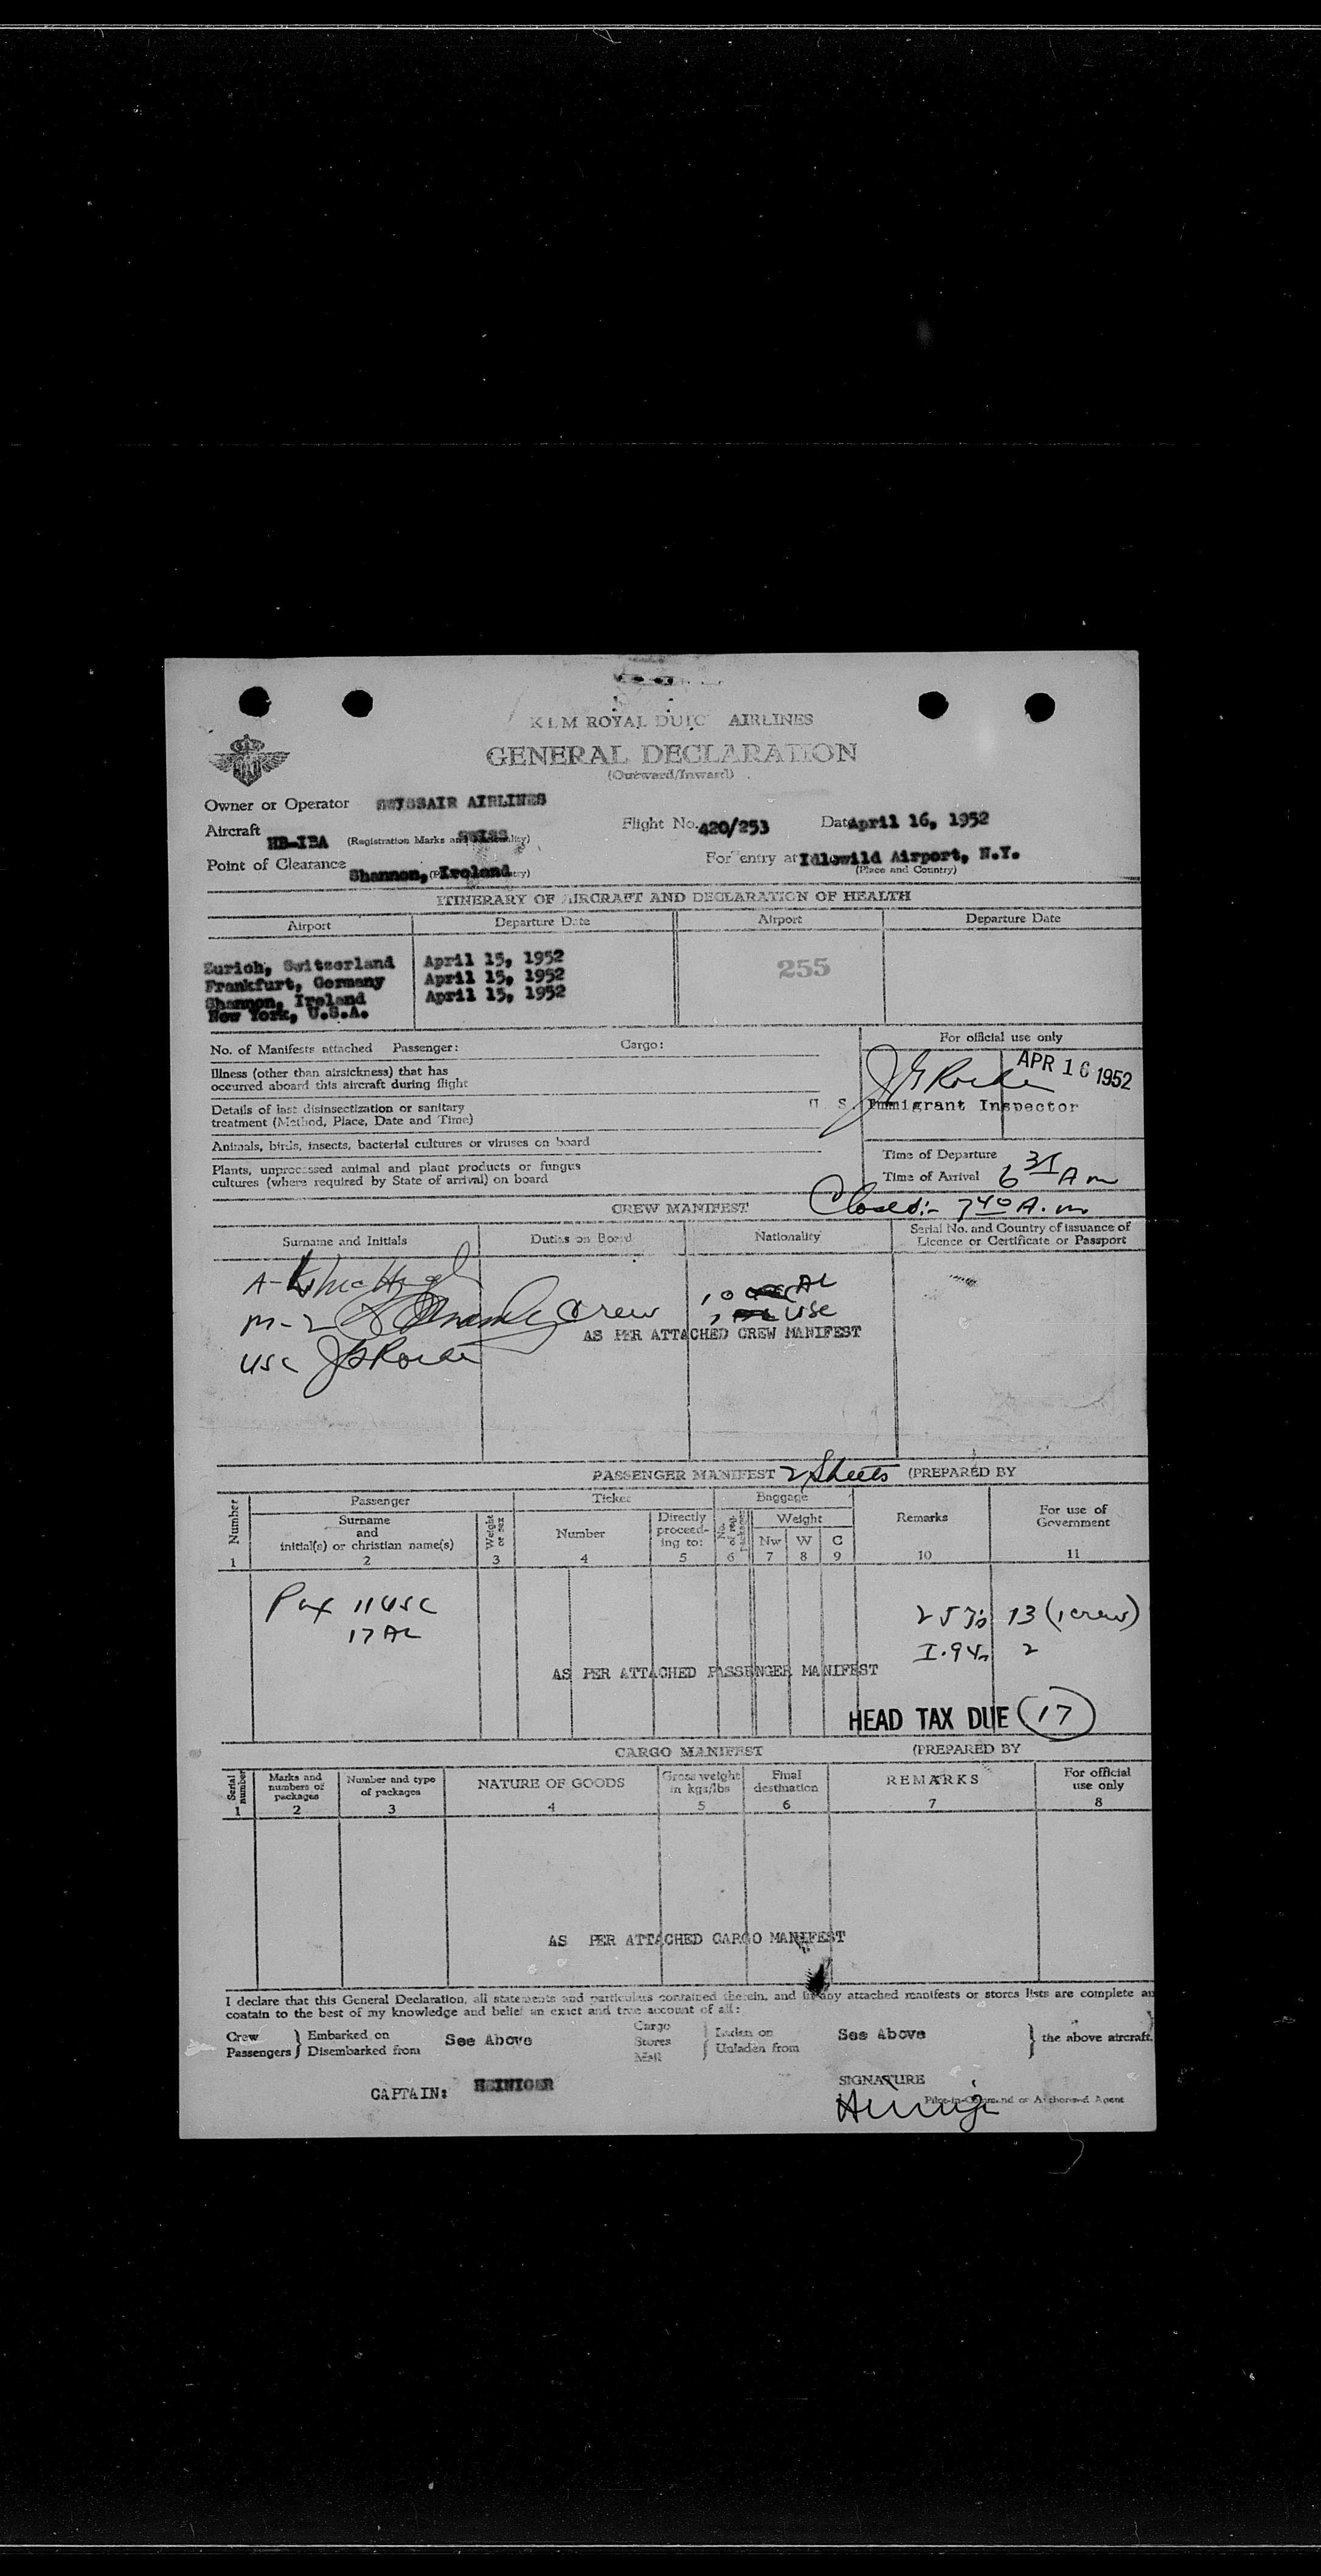 KLM ROYAL DUTC AIRLINES
GENERAL DECLARATION
(Outward/Inward)
Owner or Operator SWISSAIR AIRLINES
Aircraft HB-IBA (Registration Marks and Nationality) SWISS Flight No. 420/253 Date April 16, 1952
Point of Clearance Shannon, Ireland For entry at Idlewild Airport, N.Y.
(Place and Country)
ITINERARY OF AIRCRAFT AND DECLARATION OF HEALTH
Airport Departure Date Airport Departure Date
Zurich, Switzerland April 15, 1952 255
Frankfurt, Germany April 15, 1952
Shannon, Ireland April 15, 1952
New York, U.S.A.
No. of Manifests attached Passenger: Cargo: For official use only
Illness (other than airsickness) that has
occurred aboard this aircraft during flight
APR 16 1952
Details of last disinsectization or sanitary
treatment (Method, Place, Date and Time)
U. S. Immigrant Inspector
Animals, birds, insects, bacterial cultures or viruses on board
Plants, unprocessed animal and plant products or fungus
cultures (where required by State of arrival) on board
Time of Departure
Time of Arrival 6 35 Am
Closed:- 7 40 A.m.
CREW MANIFEST
Surname and Initials Duties on Board Nationality Serial No. and Country of issuance of
Licence or Certificate or Passport
A- McHugh
M-2 Crew 10 AL
1 USC
AS PER ATTACHED CREW MANIFEST
USC J G Rorke
PASSENGER MANIFEST 2 Sheets (PREPARED BY
Number Passenger Ticket Baggage Remarks For use of
Government
Surname
and
initial(s) or christian name(s)
Weight or sex Number Directly
proceed-
ing to:
No. of reg. packages Weight
Nw W C
1 2 3 4 5 6 7 8 9 10 11
Pax 11 USC
17 AL
257s 13 (1 crew)
I.94s 2
AS PER ATTACHED PASSENGER MANIFEST
HEAD TAX DUE 17
CARGO MANIFEST (PREPARED BY
Serial number Marks and
numbers of
packages
Number and type
of packages
NATURE OF GOODS Gross weight
in kgs/lbs
Final
destination
REMARKS For official
use only
1 2 3 4 5 6 7 8
AS PER ATTACHED CARGO MANIFEST
I declare that this General Declaration, all statements and particulars contained therein, and in any attached manifests or stores lists are complete an
contain to the best of my knowledge and belief an exact and true account of all:
Crew
Passengers } Embarked on
Disembarked from
See Above
Cargo
Stores
Mail } Laden on
Unladen from
See Above } the above aircraft.
CAPTAIN: HEINIGER
SIGNATURE
Pilot-in-Command or Authorised Agent